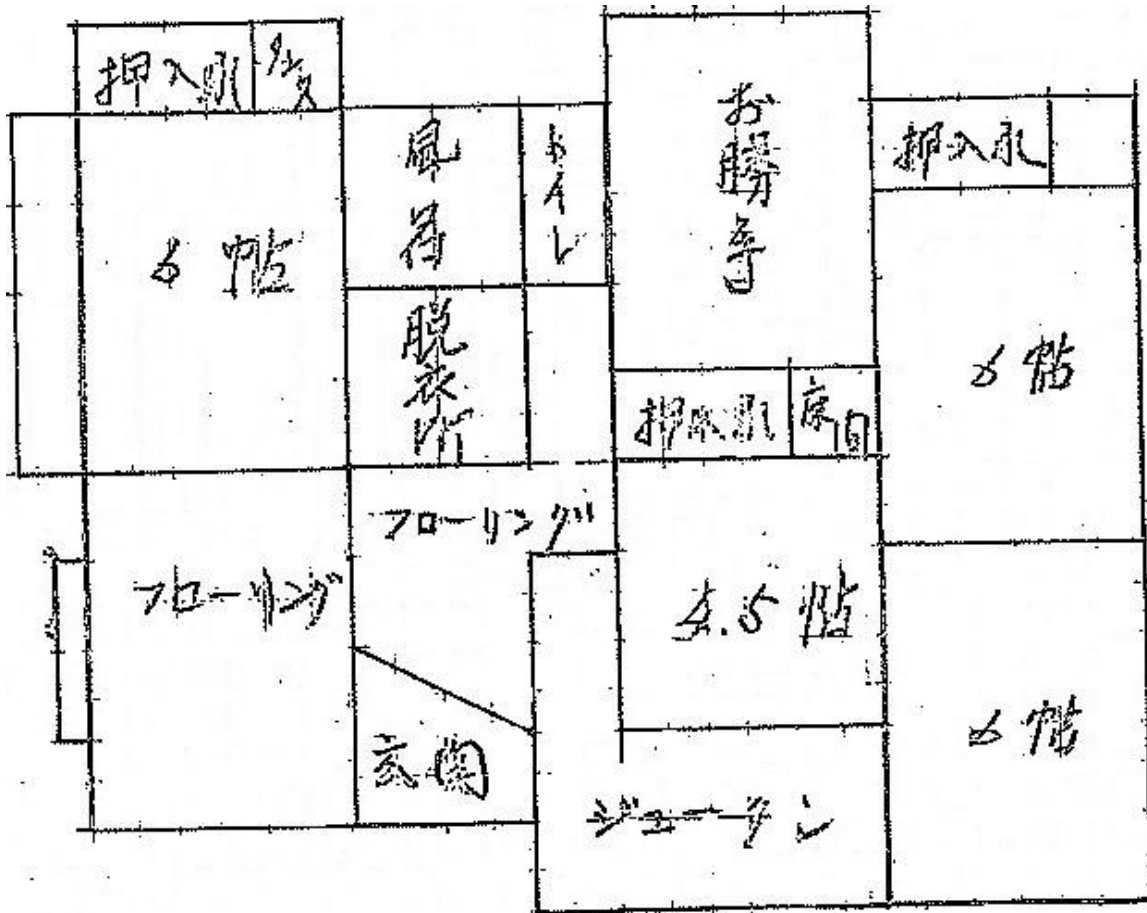 押入れ
タンス
6帖
風呂
トイレ
お勝手
押入れ
脱衣所
6帖
押入れ
床の間
フローリング
フローリング
4.5帖
6帖
玄関
ジュータン